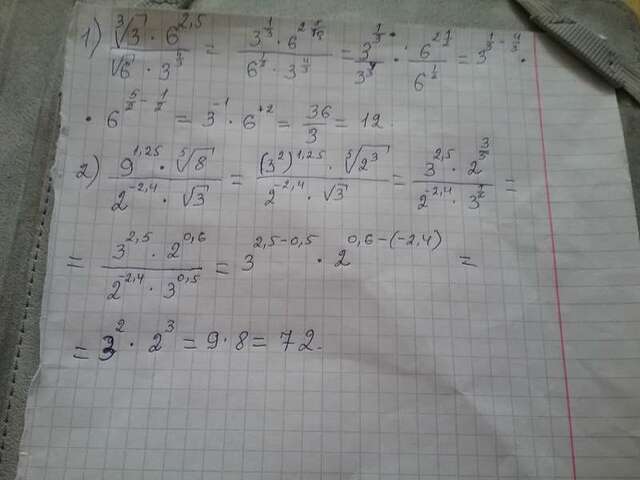 1) \frac{\sqrt[3]{3} \cdot 6^{2,5}}{\sqrt{6} \cdot 3^{\frac{4}{3}}} = \frac{3^{\frac{1}{3}} \cdot 6^{2\frac{1}{2}}}{6^{\frac{1}{2}} \cdot 3^{\frac{4}{3}}} = \frac{3^{\frac{1}{3}}}{3^{\frac{4}{3}}} \cdot \frac{6^{2\frac{1}{2}}}{6^{\frac{1}{2}}} = 3^{\frac{1}{3} - \frac{4}{3}} \cdot
\cdot 6^{\frac{5}{2} - \frac{1}{2}} = 3^{-1} \cdot 6^{+2} = \frac{36}{3} = 12.
2) \frac{9^{1,25} \cdot \sqrt[5]{8}}{2^{-2,4} \cdot \sqrt{3}} = \frac{(3^2)^{1,25} \cdot \sqrt[5]{2^3}}{2^{-2,4} \cdot \sqrt{3}} = \frac{3^{2,5} \cdot 2^{\frac{3}{5}}}{2^{-2,4} \cdot 3^{\frac{1}{2}}} =
= \frac{3^{2,5} \cdot 2^{0,6}}{2^{-2,4} \cdot 3^{0,5}} = 3^{2,5-0,5} \cdot 2^{0,6-(-2,4)} =
= 3^2 \cdot 2^3 = 9 \cdot 8 = 72.